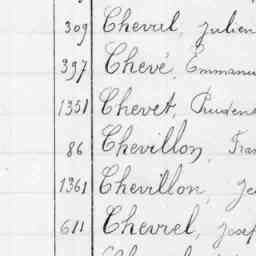 309 Cheval, Julien
397 Chevé, Emmanu
1351 Chevet, Prudens
86 Chevillon, Fran
1361 Chevillon, Je
611 Chevrel, Josef